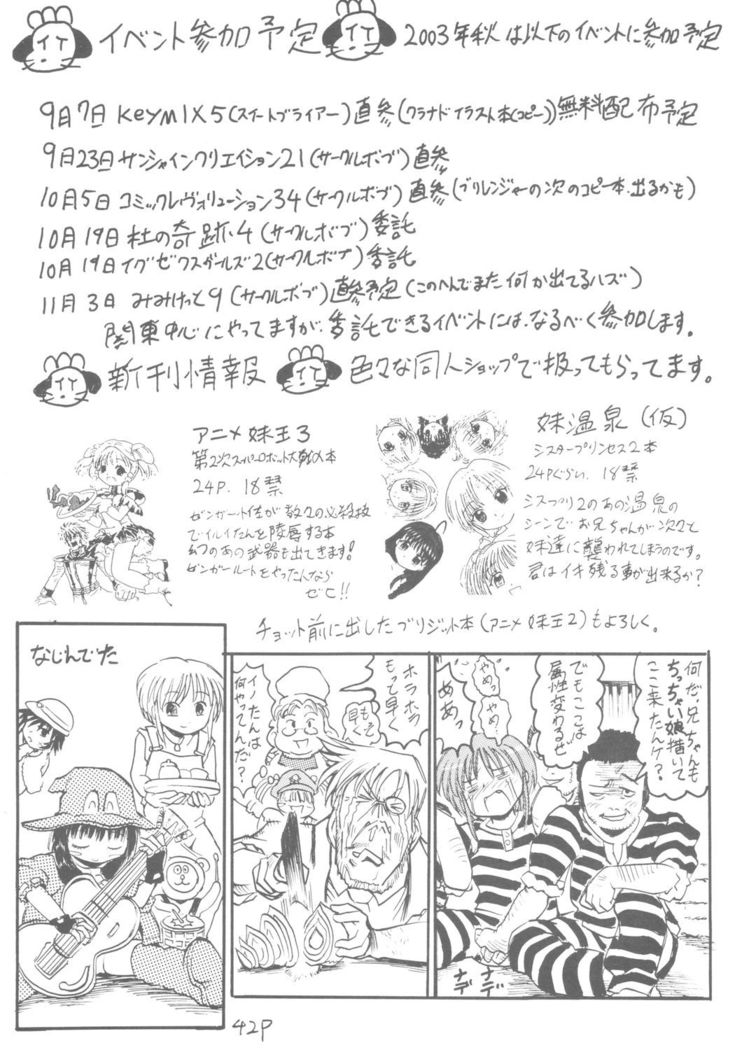 イベント参加予定
2003年秋は以下のイベントに参加予定
9月7日 KeyMIX5(スイートブライアー)直参(クラナドイラスト本(コピー))無料配布予定
9月23日 サンシャインクリエイション21(サークルボブ)直参
10月5日 コミックレヴォリューション34(サークルボブ)直参(ブリレンジャーの次のコピー本、出るかも)
10月19日 杜の奇跡4(サークルボブ)委託
10月19日 イグゼクスガールズ2(サークルボブ)委託
11月3日 みみけっと9(サークルボブ)直参予定(このへんでまた何か出てるハズ)
関東中心にやってますが、委託できるイベントには、なるべく参加します。
新刊情報
色々な同人ショップで扱ってもらってます。
アニメ妹王3
第2次スーパーロボット大戦α本
24P. 18禁
ゼンガー少佐が数々の必殺技
でイルイたんを陵辱する本
幻のあの武器も出してきます!
ゼンガールートをやったんなら
ゼヒ!!
妹温泉(仮)
シスタープリンセス2本
24Pぐらい. 18禁
シスプリ2のあの温泉の
シーンでお兄ちゃんが次々と
妹達に襲われてしまうのです。
君はイキ残る事が出来るか?
チョット前に出したブリジット本(アニメ妹王2)もよろしく。
なじんでた
ホラホラ
もって早く
早もく
イノたんは
何やってんだ?
何だ兄ちゃんも
ちっちゃい娘描いて
ここ来たんケ?
でもここは
属性変わるぜ
やめっ
やめっ
めぁっ
ナデ
ナデ
42P